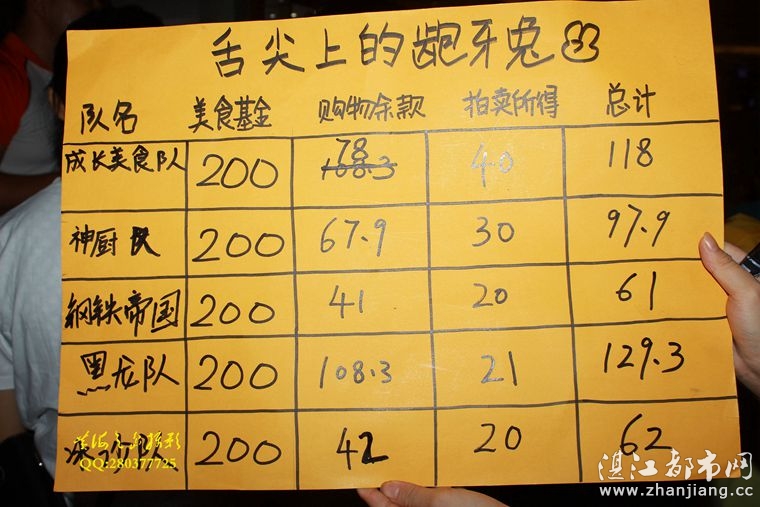 舌尖上的龅牙兔
队名 美食基金 购物余款 拍卖所得 总计
成长美食队 200 78 108.3 40 118
神厨队 200 67.9 30 97.9
钢铁帝国 200 41 20 61
黑龙队 200 108.3 21 129.3
队 200 42 20 62
QQ:280377725
湛江都市网
www.zhanjiang.cc